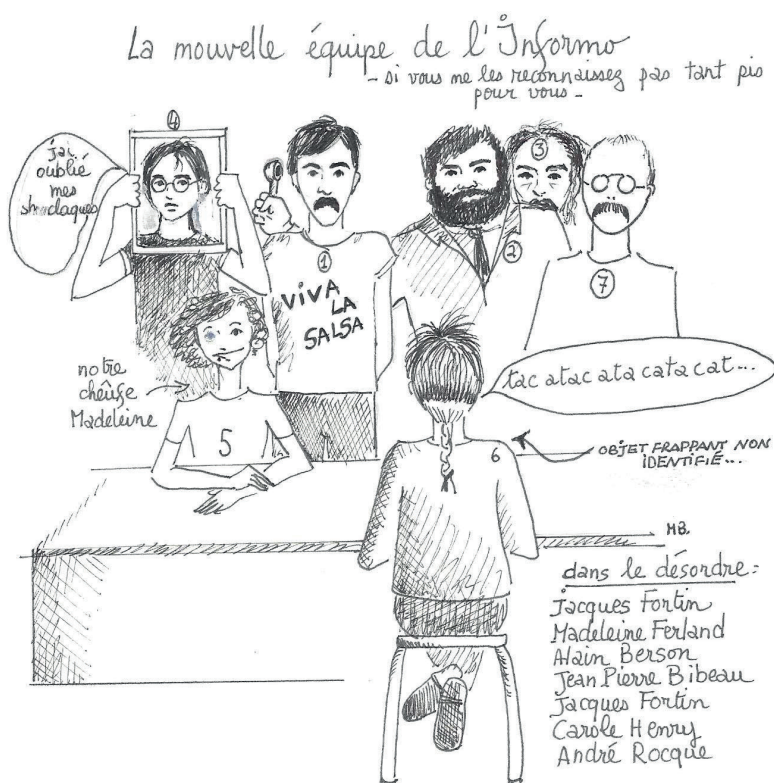 La mouvelle équipe de l'Informo
- si vous me les reconnaissez pas tant pis
pour vous -
4
j'ai
oublié
mes
shmdaques
3
1
2
7
VIVA
LA
SALSA
notre
cheûfe
Madeleine
5
tac atac ata cata cat...
6
OBJET FRAPPANT NON
IDENTIFIÉ...
MB.
dans le désordre:
Jacques Fortin
Madeleine Ferland
Alain Berson
Jean Pierre Bibeau
Jacques Fortin
Carole Henry
André Rocque